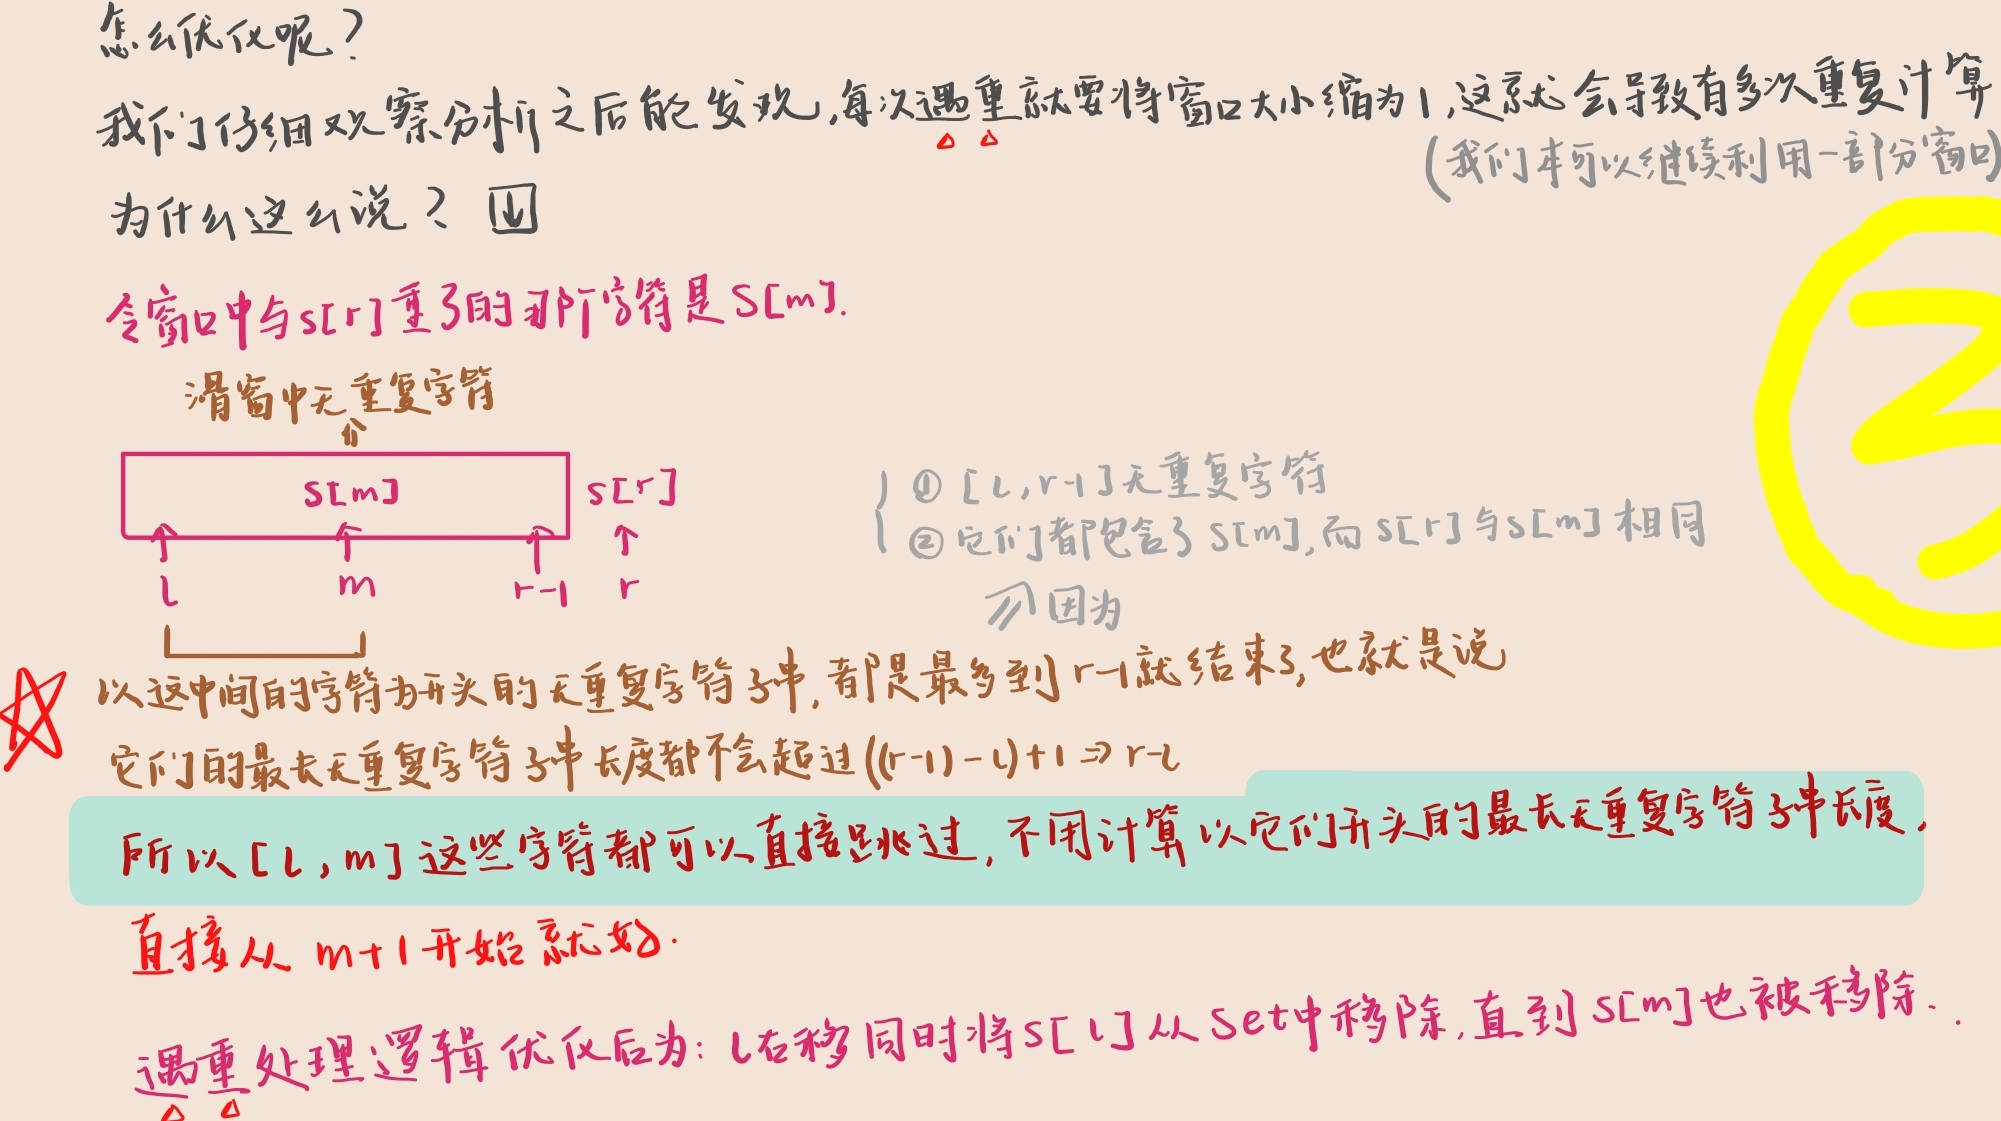 怎么优化呢？
我们仔细观察分析之后能发现，每次遇重就要将窗口大小缩为1，这就会导致有多次重复计算
(我们本可以继续利用一部分窗口)
为什么这么说？ ↓
令窗口中与s[r]重了的那个字符是S[m].
滑窗中无重复字符
S[m] s[r]
l m r-1 r
① [l,r-1]无重复字符
② 它们都包含了S[m],而s[r]与s[m]相同
因为
以这中间的字符为开头的无重复字符子串，都是最多到r-1就结束了，也就是说
它们的最长无重复字符子串长度都不会超过((r-1)-l)+1⇒r-l
所以[l,m]这些字符都可以直接跳过，不用计算以它们开头的最长无重复字符子串长度，
直接从m+1开始就好.
遇重处理逻辑优化后为：l右移同时将s[l]从Set中移除，直到s[m]也被移除..
②